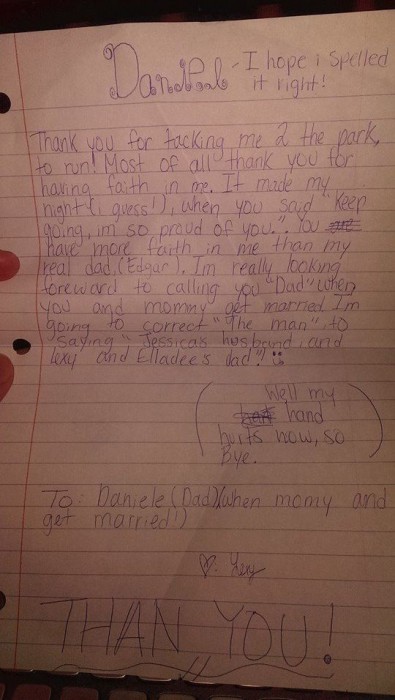 Daniel - I hope i spelled
it right!
Thank you for tacking me 2 the park,
to run! Most of all thank you for
having faith in me. It made my
night (i guess!), when you said "Keep
going, im so proud of you.". You are
have more faith in me than my
real dad. (Edgar). I'm really looking
foreward to calling you "Dad" when
you and mommy get married I'm
going to correct "The man", to
saying "Jessica's husband, and
lexy and Elladee's dad"!
(Well my
hand
hurts now, so
Bye.)
To: Daniele (Dad)(when momy and
get married!)
♡: Lexy
THAN YOU!